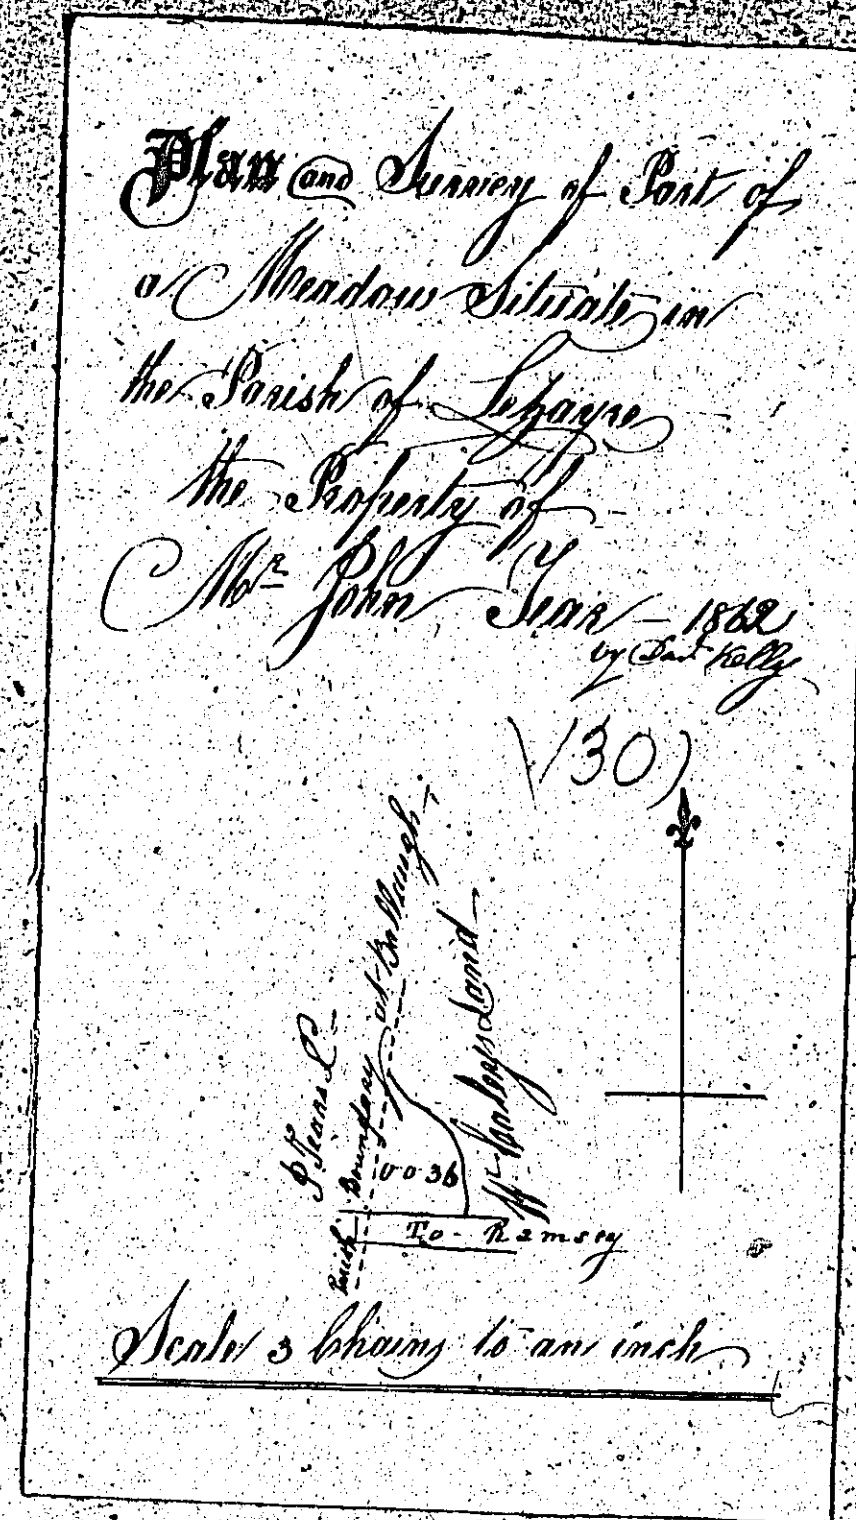 Plan and Survey of Part of
a Meadow Situate in
the Parish of Lezayre
the Property of
Mr John Tear – 1862
by Dad Kelly
(130)
Parish Boundary at Ballaugh
Land
0 0 36
To - Ramsey
Scale 3 Chains to an inch